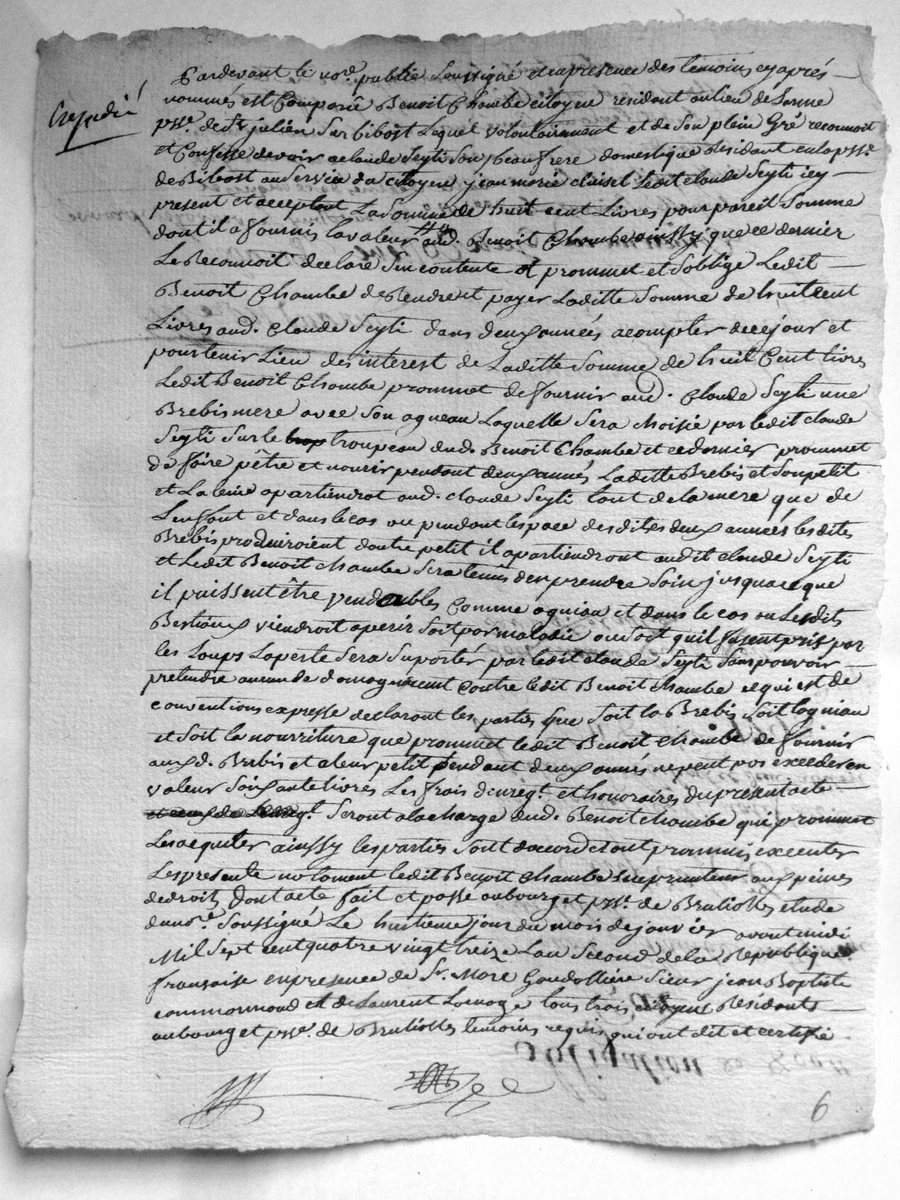 Expédié
Pardevant le nore. public Soussigné et en presence des temoins cy aprés
nommés est Comparû Benoit Chambe citoyen residant au lieu de
psse. de St julien Sur bibost Lequel volontairement et de Son plein Gré reconnoit
et Confesse devoir a claude Seyti Son beaufrere domestique Residant en la psse.
de Bibost au Service du Citoyen jean marie Ledit claude Seyti icy
present et acceptant La Somme de huit cent Livres pour pareil Somme
dont il a fournis la valeur aud. Benoit Chambe ainssy que ce dernier
Le Reconnoit declare Sen contente et prommet et Soblige Ledit
Benoit Chambe de Rendre et payer Laditte Somme de huit cent
Livres aud. Claude Seyti dans deux années a compter de ce jour et
pour tenir Lieu des interest de Laditte Somme de huit Cent livres
Ledit Benoit Chambe prommet de fournir aud. Claude Seyti une
Brebis mere avec Son agneau Laquelle Sera choisie par ledit claude
Seyti Sur le troupeau dud. Benoit Chambe et ce dernier prommet
de faire pêtre et nourir pendant deux années Laditte Brebis et Son petit
et La laine apartiendrot aud. claude Seyti tant de la mere que de
Lenffant et dans le cas ou pendant lespace des dites deux années les dites
Brebis produiroient dautre petit il apartiendront audit claude Seyti
et Ledit Benoit chambe Sera tenûs den prendre Soin jusqua ce que
il puissent être vendables Comme agniau et dans le cas ou Lesdits
Bestiaux viendroit a perir Soit par maladie ou Soit quil fusent pris par
les Loups La perte Sera Suporté par ledit claude Seyti Sans pouvoir
pretendre aucun de domagement Contre ledit Benoit chambe ce qui est de
conventions expresse declarant les parties que Soit la Brebis Soit lagniau
et Soit la nourriture que prommet ledit Benoit Chambe de fournir
auxd. Brebis et a leur petit pendant deux années ne peut pas exceder en
valeur Soixante livres Les frais denregt. et honoraires du present acte
Seront a la charge dud. Benoit chambe qui prommet
Les acquiter ainssy les parties Sont daccord et ont prommis executer
Les presente notament ledit Benoit Chambe emprunteur aux peines
de droit Dont acte fait et passé au bourg et psse. de Brulioles etude
du nore. Soussigné Le huitieme jour du mois de janvier avant midi
Mil Sept cent quatre vingt treize Lan Second de la Republique
francaise en presence de Sr. Marc Goudolliere Sieur jean Baptiste
commarmond et de Laurent tous trois citoyens Residants
au bourg et psse. de Brulioles temoins requis qui ont dit et certifié
6